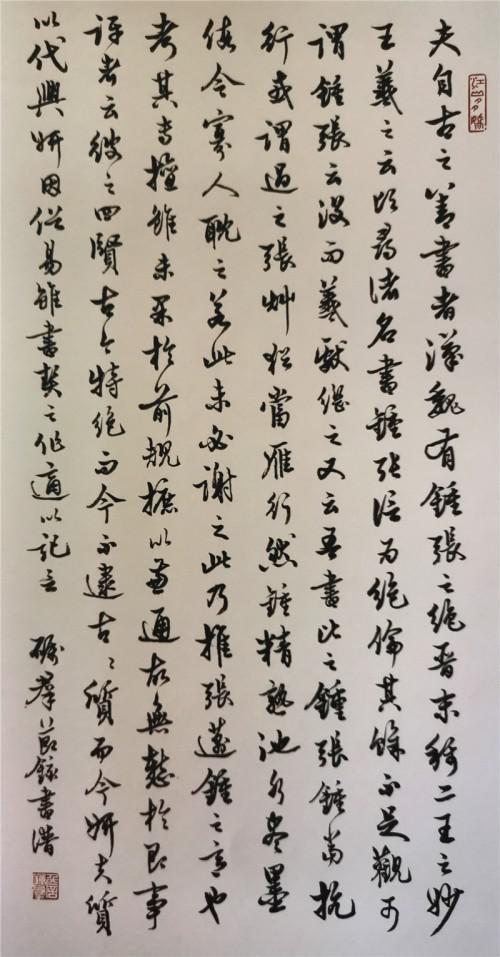 江山多嬌
夫自古之善書者漢魏有鍾張之絕晉末稱二王之妙
王羲之云頃尋諸名書鍾張信為絕倫其餘不足觀可
謂鍾張云沒而羲獻繼之又云吾書比之鍾張鍾當抗
行或謂過之張艸猶當雁行然鍾精熟池水盡墨
假令寡人耽之若此未必謝之此乃推張邁鍾之意也
考其專擅雖未果於前規摭以兼通故無慙於即事
評者云彼之四賢古今特絕而今不逮古〻質而今妍夫質
以代興妍因俗易雖書契之作適以記言
群節錄書譜